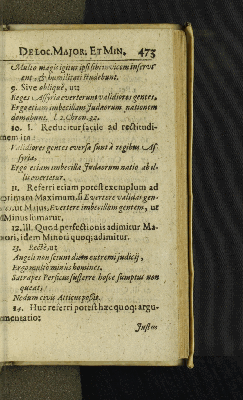 DE LOC. MAJOR. ET MIN. 473
Multo magis igitur ipsi sibi invicem inservient, & humilitati studebunt.
9. Sive obliquè, ut:
Reges Assyriæ everterunt validiores gentes.
Ergo etiam imbecillam Judæorum nationem
domabunt. 2. Chron. 32.
10. I. Reducitur facile ad rectitudinem ita:
Validiores gentes eversæ sunt à regibus Assyriæ.
Ergo etiam imbecilla Judæorum natio ab illis evertetur.
11. Referri etiam potest exemplum ad
primam Maximam. si Evertere validas gentes, ut Majus, Evertere imbecillam gentem, ut
Minus sumatur.
12. III. Quod perfectionis adimitur Majori, idem Minori quoq; adimitur.
13. Rectè, ut
Angeli non sciunt diem extremi judicij,
Ergo multo minus homines.
Satrapes Persicus sufferre hosce sumptus non
queat,
Nedum civis Atticus possit.
14. Huc referri potest hæc quoq; argumentatio:
Justus